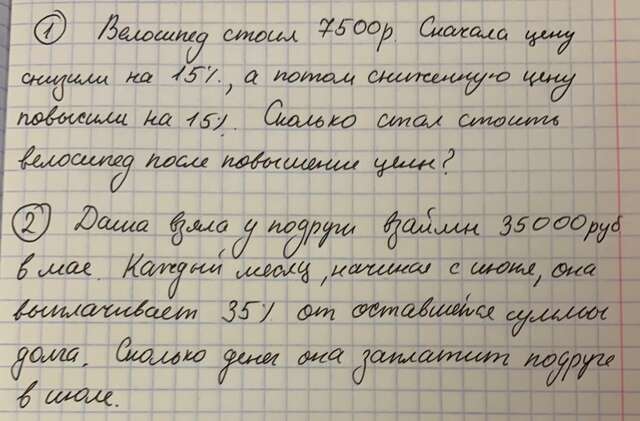 ① Велосипед стоил 7500р. Сначала цену
снизили на 15%, а потом сниженную цену
повысили на 15%. Сколько стал стоить
велосипед после повышения цены?
② Даша взяла у подруги взаймы 35000руб
в мае. Каждый месяц, начиная с июня, она
выплачивает 35% от оставшейся суммы
долга. Сколько денег она заплатит подруге
в июле.